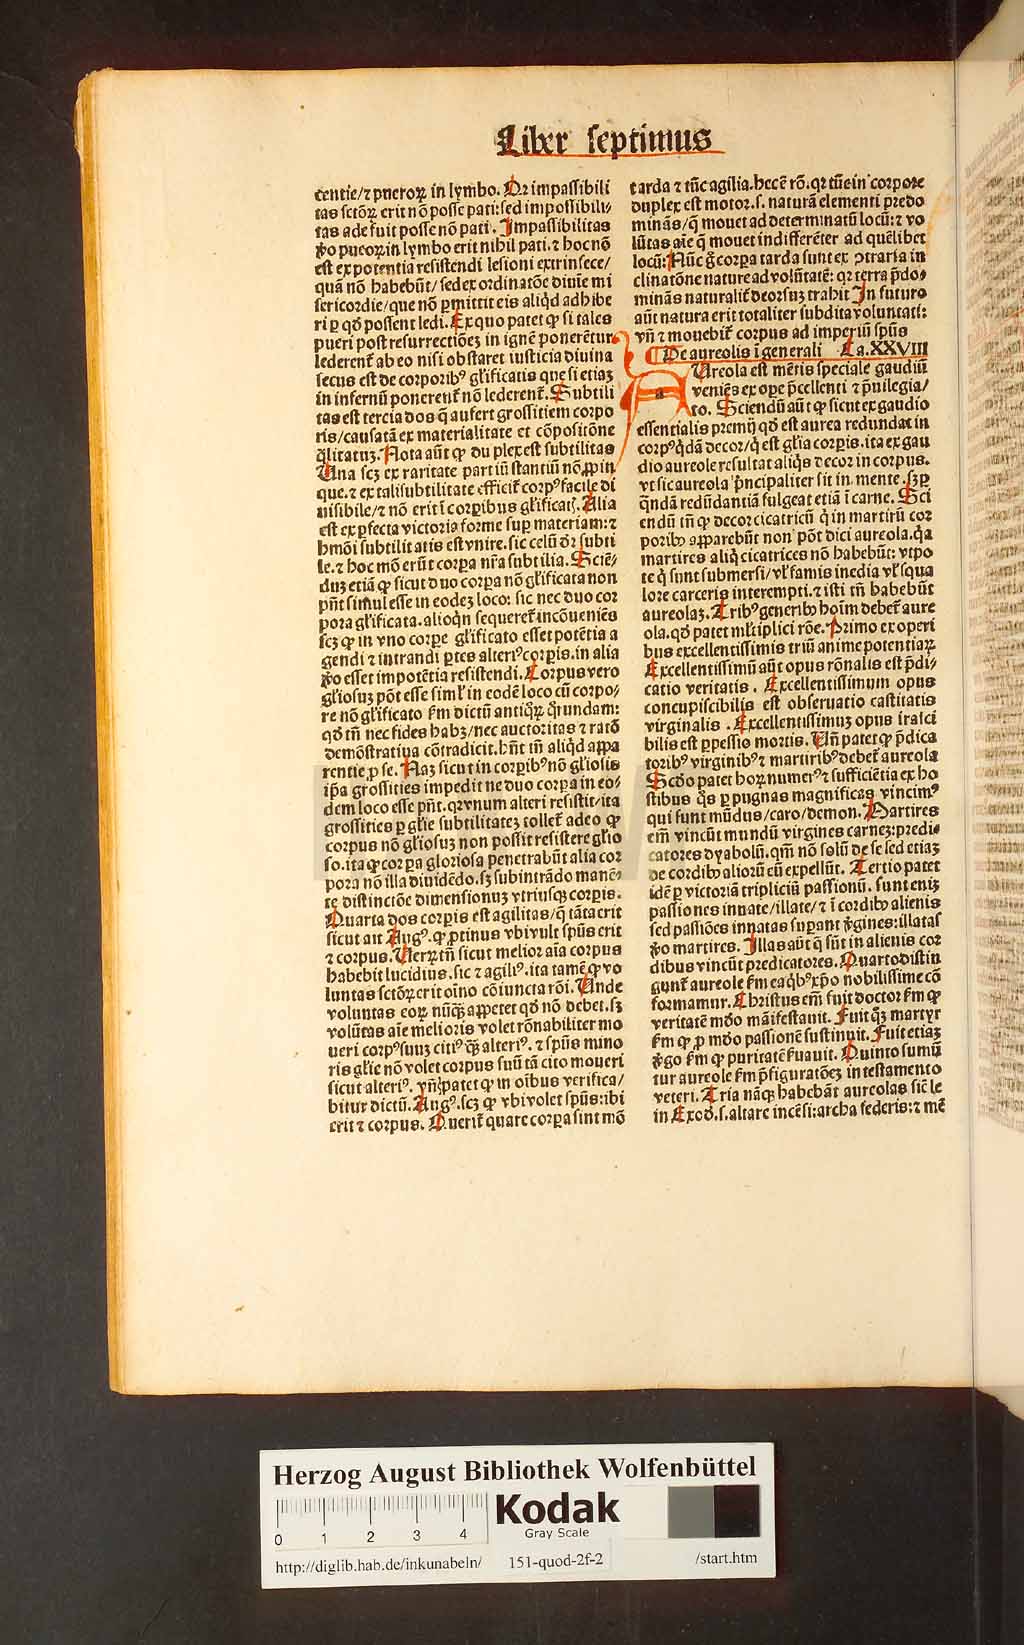 Liber septimus
centie/ ⁊ pueroꝝ in lymbo. Qꝛ impassibili
tas sctōꝝ erit nō posse pati: sed impossibili⸗
tas ade fuit posse nō pati. Impassibilitas
ꝟo pueoꝝ in lymbo erit nihil pati. ⁊ hoc nō
est ex potentia resistendi lesioni extrinsece/
quā nō habebūt/ sed ex ordinatōe diuīe mi
sericordie/ que nō ꝑmittit eis aliqd adhibe
ri ꝑ qd̄ possent ledi. Ex quo patet ꝙ si tales
pueri post resurrectiōeꝫ in ignē ponerētur
lederent̄ ab eo nisi obstaret iusticia diuina
secus est de corporibꝰ gl̄ificatis que si etiaꝫ
in infernū ponerent̄ nō lederent̄. Subtili
tas est tercia dos q̄ aufert grossitiem corpo
ris/ causatā ex materialitate et cōpositōne
q̄litatuꝫ. Nota aūt ꝙ duplex est subtilitas
Una scꝫ ex raritate partiū stantiū nō ꝓpin
que. ⁊ ex tali subtilitate efficit̄ corpꝰ facile di
uisibile/ ⁊ nō erit ī corꝑibus gl̄ificatꝭ. Alia
est ex ꝑfecta victoria forme suꝑ materiam: ⁊
hmōi subtilitatis est vnire. sic celū dꝛ̄ subti
le. ⁊ hoc mō erūt corꝑa nr̄a subtilia. Sciē⸗
duꝫ etiā ꝙ sicut duo corꝑa nō gl̄ificata non
pn̄t simul esse in eodeꝫ loco: sic nec duo cor
pora gl̄ificata. alioqn sequeret̄ incōueniēs
scꝫ ꝙ in vno corꝑe gl̄ificato esset potētia a
gendi ⁊ intrandi ꝑtes alteriꝰ corꝑis. in alia
ꝟo esset impotētia resistendi. Corpus vero
gl̄iosuꝫ pōt esse siml̄ in eodē loco cū corpo⸗
re nō gl̄ificato ẜm dictū antiq̄ꝝ q̄rundam:
qd̄ tn̄ nec fides habꝫ/ nec auctoritas ⁊ ratō
demōstratiua cōtradicit. hn̄t tn̄ aliqd appa
rentie ꝑ se. Naꝫ sicut in corꝑibꝰ nō gl̄iosis
ip̄a grossities impedit ne duo corꝑa in eo⸗
dem loco esse pn̄t. qꝛ vnum alteri resistit/ ita
grossities ꝑ gl̄ie subtilitateꝫ tollet̄ adeo ꝙ
corpus nō gl̄iosuꝫ non possit resistere gl̄io
so. ita ꝙ corꝑa gloriosa penetrabūt alia cor
pora nō illa diuidēdo. sꝫ subintrādo manē⸗
te distinctōe dimensionuꝫ vtriusqꝫ corꝑis.
Quarta dos corꝑis est agilitas/ q̄ tāta erit
sicut ait Augꝰ. ꝙ ꝓtinus vbi vult spūs erit
⁊ corpus. Ueꝝ tn̄ sicut melior aīa corpus
habebit lucidius. sic ⁊ agiliꝰ. ita tamē ꝙ vo
luntas sctōꝝ erit oīno cōiuncta rōi. Unde
voluntas eoꝝ nūqꝫ appetet qd̄ nō debet. sꝫ
volūtas aīe melioris volet rōnabiliter mo
ueri corpꝰ suuꝫ citiꝰ qꝫ alteriꝰ. ⁊ spūs mino
ris gl̄ie nō volet corpus suū tā cito moueri
sicut alteriꝰ. vn̄ patet ꝙ in oībus verifica/
bitur dictū. Augꝰ. scꝫ ꝙ vbi volet spūs: ibi
erit ⁊ corpus. Querit̄ quare corꝑa sint mō
tarda ⁊ tūc agilia. hec ē rō. qꝛ tūc in corpore
duplex est motor. s. naturā elementi predo
minās/ q̄ mouet ad determinatū locū: ⁊ vo
lūtas aīe q̄ mouet indifferēter ad quēlibet
locū: Nūc g̊ corꝑa tarda sunt ex ꝯtraria in
clinatōne nature ad volūtatē: qꝛ terra p̄do⸗
minās naturalit̄ deorsuꝫ trahit In futuro
aūt natura erit totaliter subdita voluntati:
vn̄ ⁊ mouebit̄ corpus ad imperiū spūs
De aureolis ī generali Ca. XXVIII
aUreola est mēris speciale gaudiū
veniēs ex oꝑe p̄cellenti ⁊ p̄uilegia/
to. Sciendū aūt ꝙ sicut ex gaudio
essentialis premij qd̄ est aurea redundat in
corpꝰ q̄dā decor/ q̄ est gl̄ia corꝑis. ita ex gau
dio aureole resultat aliqs decor in corpus.
vt sic aureola pͥncipaliter sit in mente. sꝫ ꝑ
qͣndā redūdantiā fulgeat etiā ī carne. Sci
endū tn̄ ꝙ decor cicatricū q̄ in martirū cor
poribꝰ apparebūt non pōt dici aureola. qͣ
martires aliq̄ cicatrices nō habebūt: vtpo
te q̄ sunt submersi/ vl̄ famis inedia vl̄ squa
lore carceris interempti. ⁊ isti tn̄ habebūt
aureolaꝫ. Tribꝰ generibꝰ hoīm debet̄ aure
ola. qd̄ patet ml̄tiplici rōe. Primo ex operi
bus excellentissimis triū anime potentiaꝝ
Excellentissimū aūt opus rōnalis est p̄di⸗
catio veritatis. Excellentissimum opus
concupiscibilis est obseruatio castitatis
virginalis. Excellentissimuꝫ opus irasci
bilis est ꝑpessio mortis. Un̄ patet ꝙ p̄dica
toribꝰ virginibꝰ ⁊ martiribꝰ debet̄ aureola
Scdo patet hoꝝ numerꝰ ⁊ sufficiētia ex ho
stibus q̄s ꝑ pugnas magnificas vincimꝰ
qui sunt mūdus/ caro/ demon. Martires
em̄ vincūt mundū virgines carneꝫ: predi⸗
catores dyabolū. qm̄ nō solū de se sed etiaꝫ
de cordibꝰ alioꝝ eū expellūt. Tertio patet
idē ꝑ victoriā tripliciū passionū. sunt eniꝫ
passiones innate/ illate/ ⁊ ī cordibꝰ alienis
sed passiōes innatas suꝑant ꝟgines: illatas
ꝟo martires. Illas aūt q̄ sūt in alienis cor
dibus vincūt predicatores. Quarto distin
gunt̄ aureole ẜm ea qͥbꝰ xp̄o nobilissime cō
formamur. Christus em̄ fuit doctor ẜm ꝙ
veritatē mdo māifestauit. Fuit qꝫ martyr
ẜm ꝙ ꝓ mdo passionē sustinuit. Fuit etiaꝫ
ꝟgo ẜm ꝙ puritatē ẜuauit. Quinto sumū
tur aureole ẜm p̄figuratōeꝫ in testamento
veteri. Tria nāqꝫ habebāt aureolas sic̄ le
in Exod. s. altare incēsi: archa federis: ⁊ mē
Herzog August Bibliothek Wolfenbüttel
Kodak
Gray Scale
0 1 2 3 4
http://diglib.hab.de/inkunabeln/ 151-quod-2f-2 /start.htm